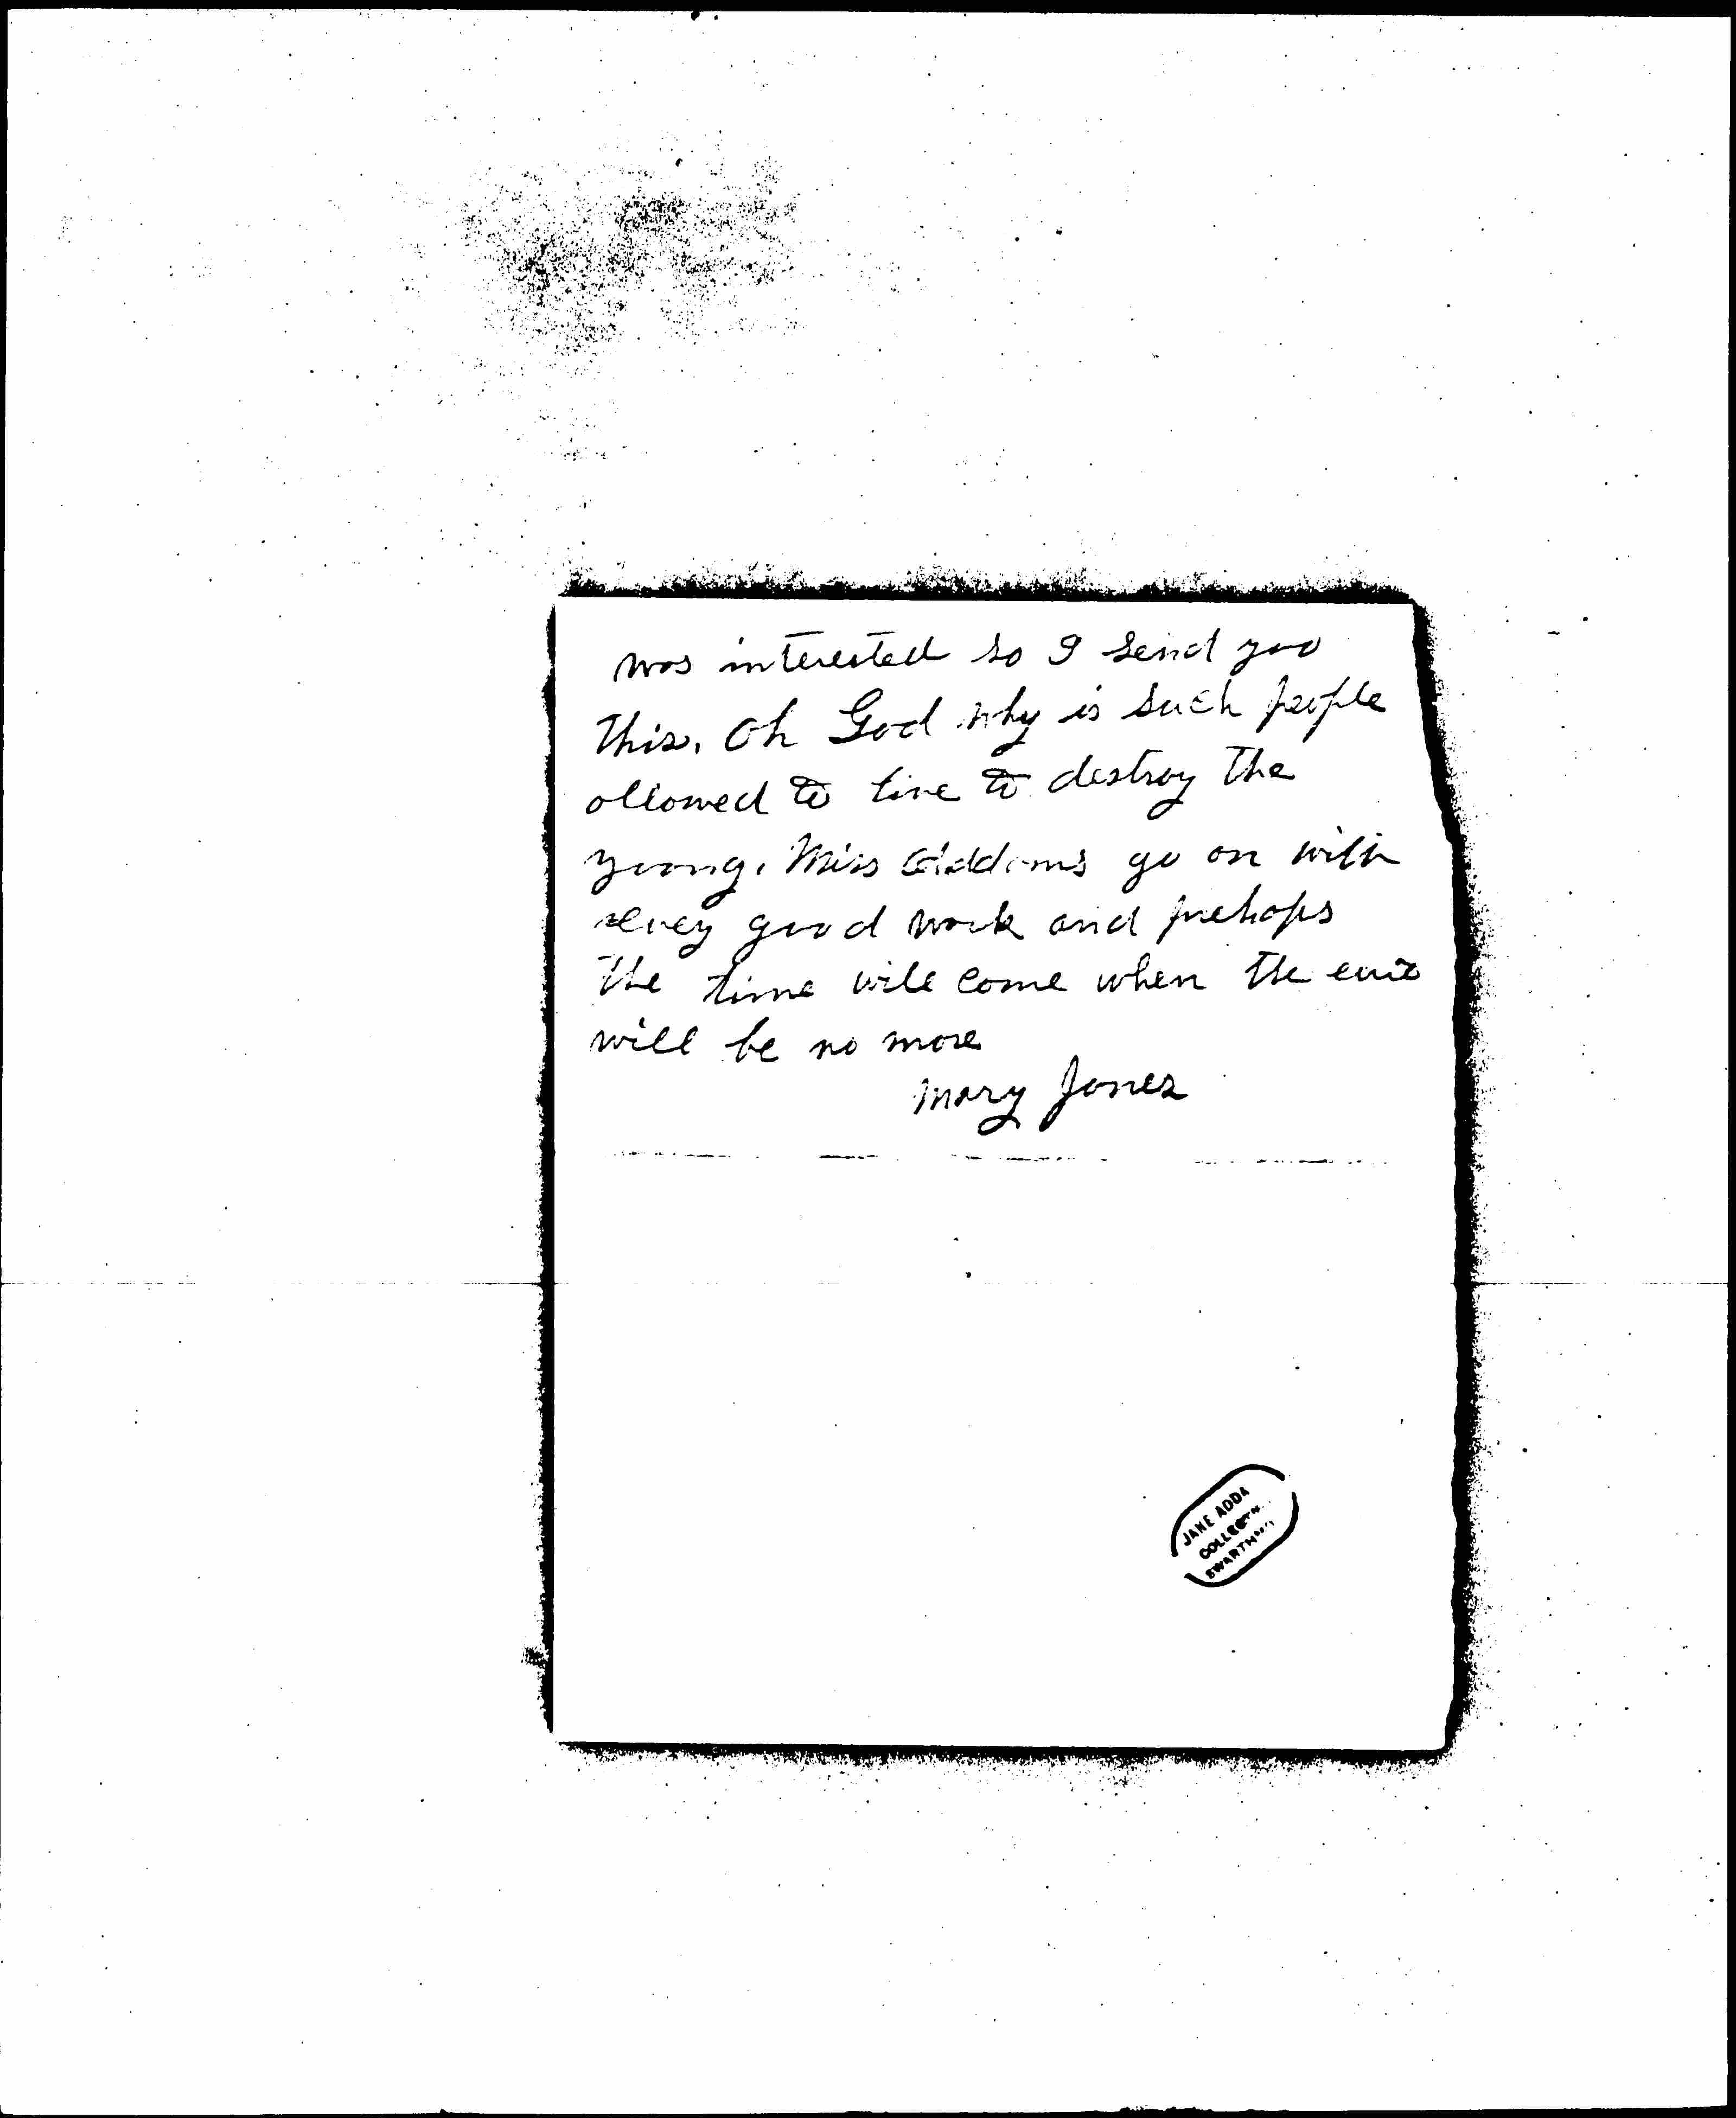 was interested so I send you
this. Oh God why is such people
allowed to live to destroy the
young. Miss Addams go on with
evey good work and prehaps
the time will come when the evil
will be no more
Mary Jones
JANE ADDA
COLLECT
SWARTHM